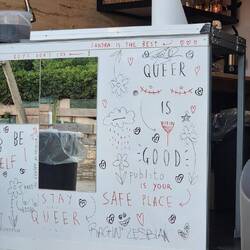 SANDRA IS THE BEST
QUEER
IS
GOOD
BE
publito
IS YOUR
SAFE PLACE
STAY
QUEER
RAGIN' LESBIAN